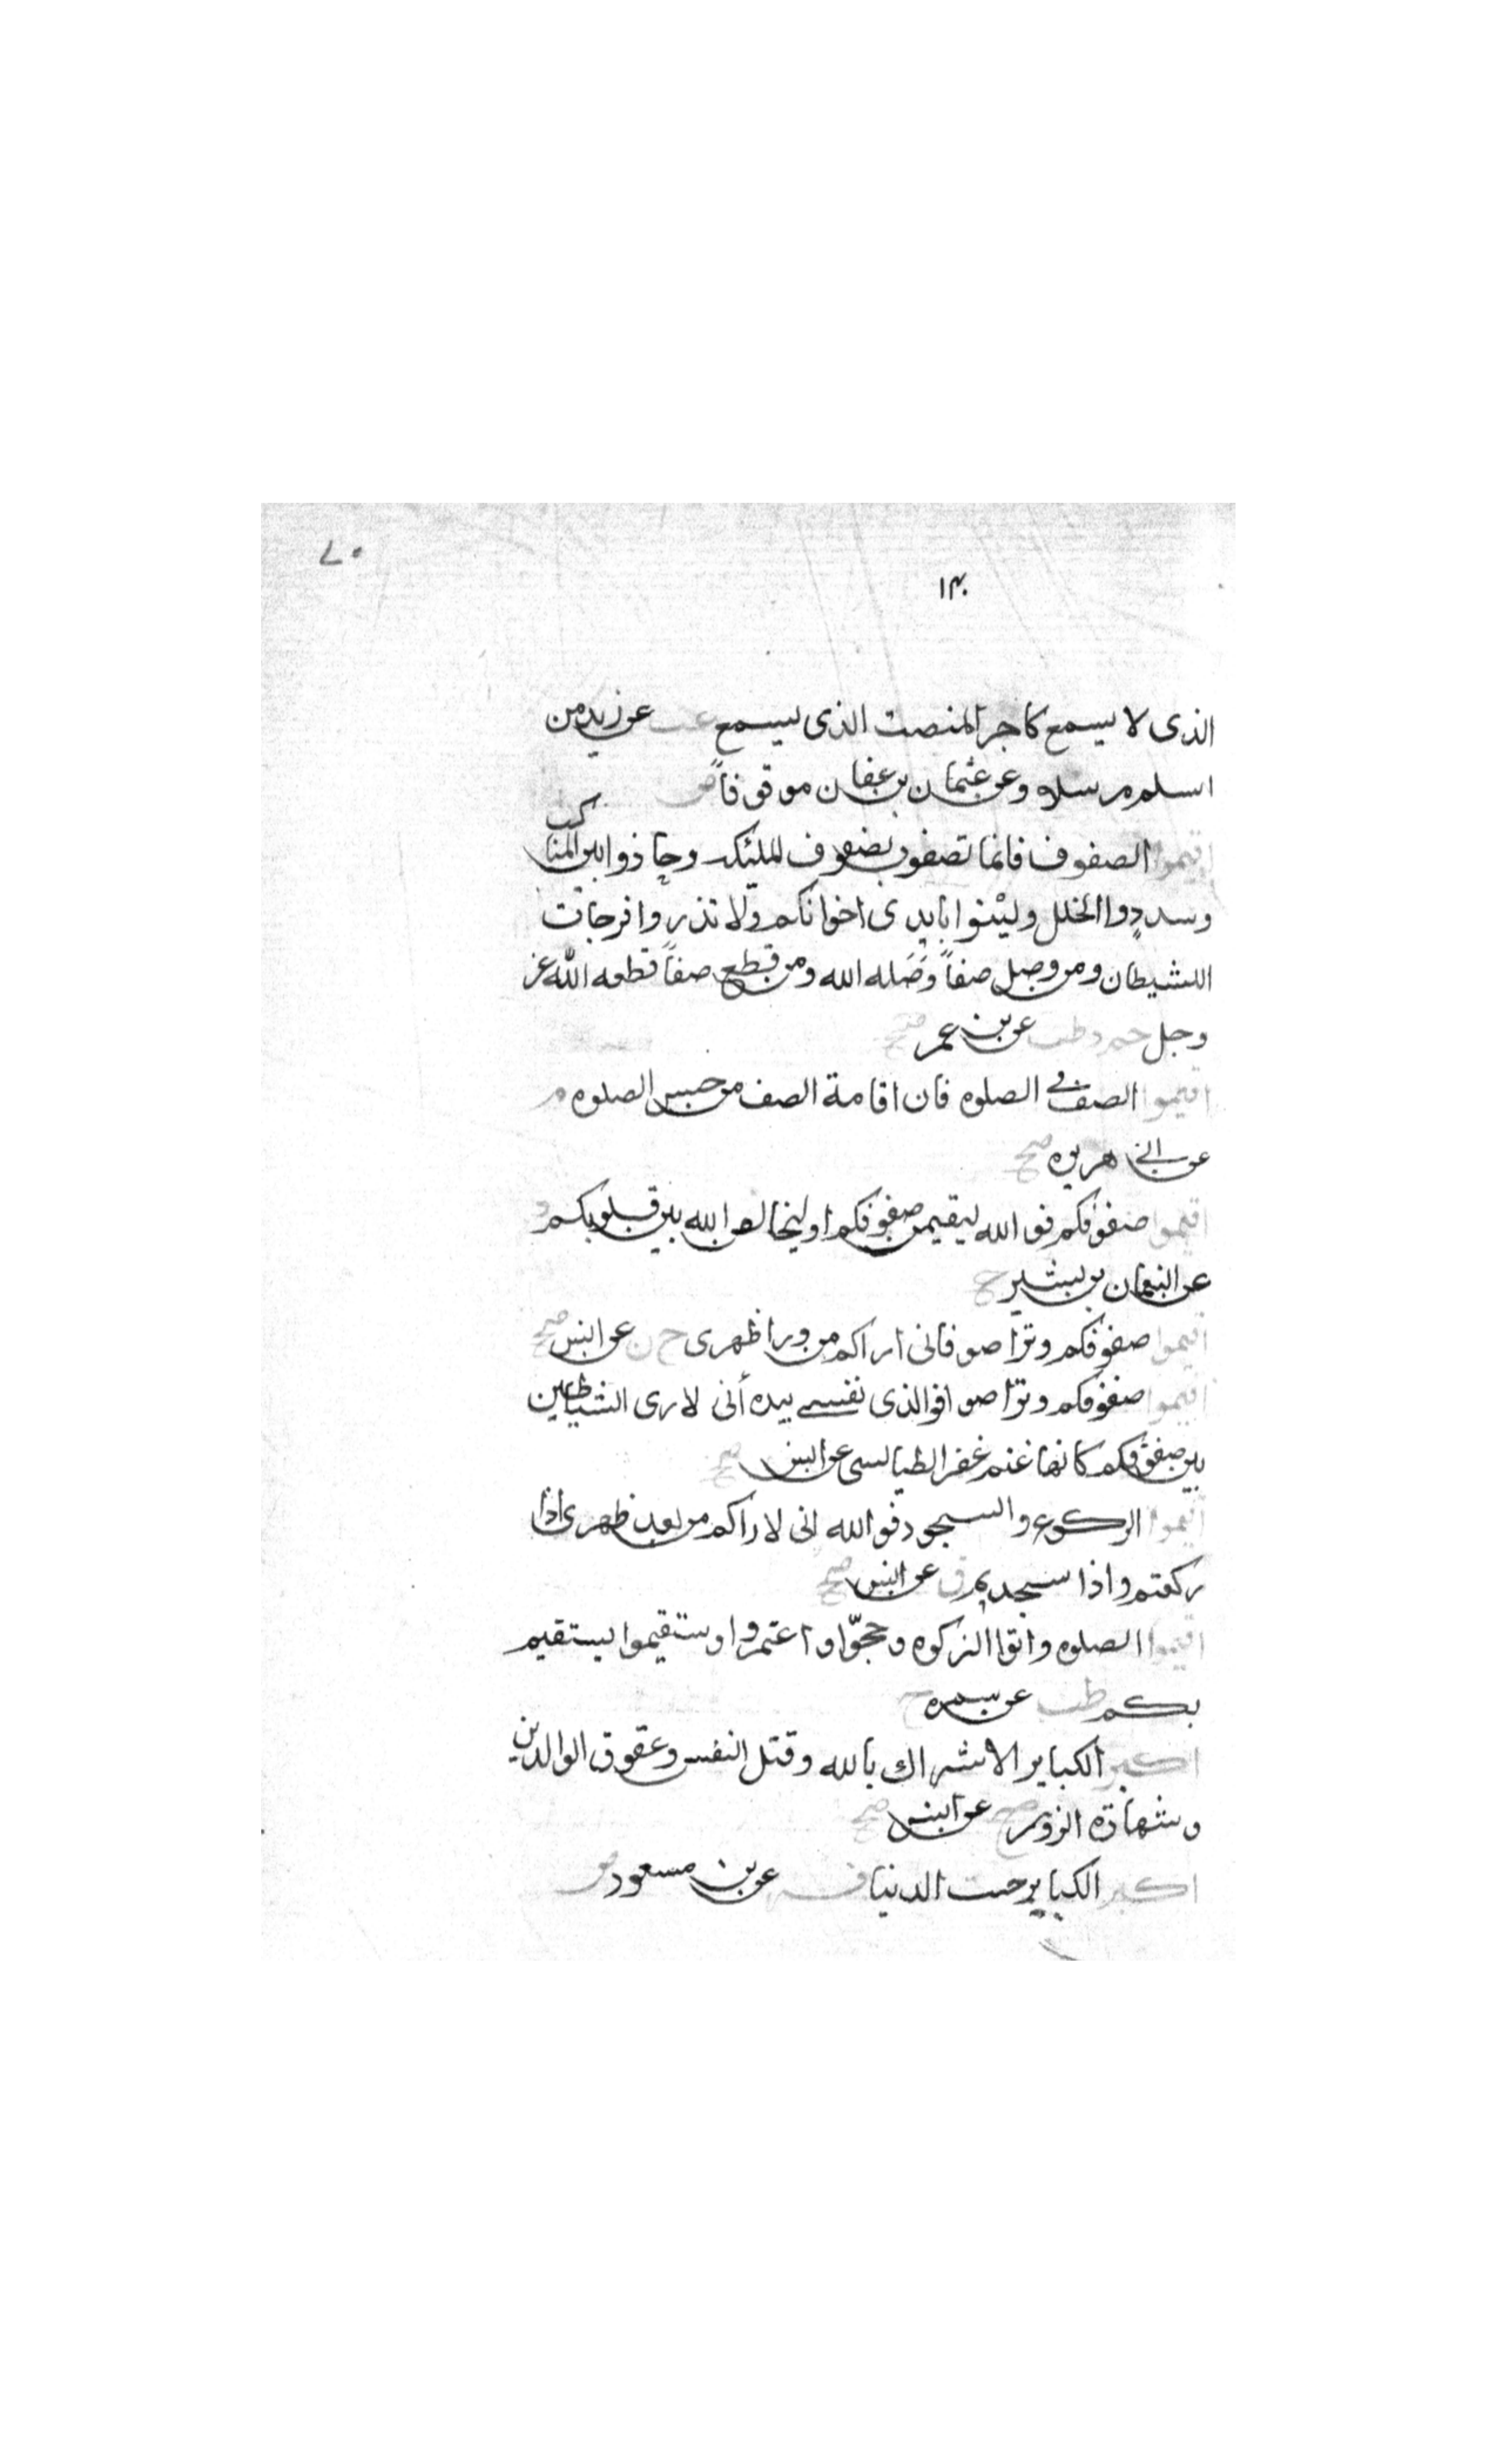 ٧٠
١٣٠
الذى لا يسمع كاجر المنصت الذى يسمع عب عن زيد من
اسلم مرسلا وعن عثمان بن عفان موقوفاً ض
اقيموا الصفوف فانما تصفون بصفوف المليكه وحاذوا بين المناكب
وسددوا الخلل ولينوا بايدى اخوانكم ولا تذروا فرجات
الشيطان ومن وصل صفاً وصله الله ومن قطع صفاً قطعه الله عز
وجل حم د طب عن بن عمر صح
اقيموا الصف فى الصلوه فان اقامة الصف من حسن الصلوه م
عن ابى هريره صح
اقيموا صفوفكم فو الله ليقيمن صفوفكم او ليخالفن الله بين قلوبكم د
عن النعمان بن بشير ح
اقيموا صفوفكم وتراصو فانى اراكم من ورا ظهرى خ ن عن انس صح
اقيموا صفوفكم وتراصوا فوالذى نفسى بيده أنى لارى الشياطين
بين صفوفكم كانها غنم عفر الطيالسى عن انس صح
اقيموا الركوع والسجود فوالله انى لاراكم من بعد ظهرى اذا
ركعتم واذا سجدتم ق عن انس صح
اقيموا الصلوه واتوا الزكوه وحجوّا واعتمروا وستقيموا يستقيم
بكم طب عن سمره ح
اكبر الكباير الاشراك بالله وقتل النفس وعقوق الوالدين
وشهادة الزور خ عن انس صح
اكبر الكباير حب الدنيا فر عن بن مسعود ض